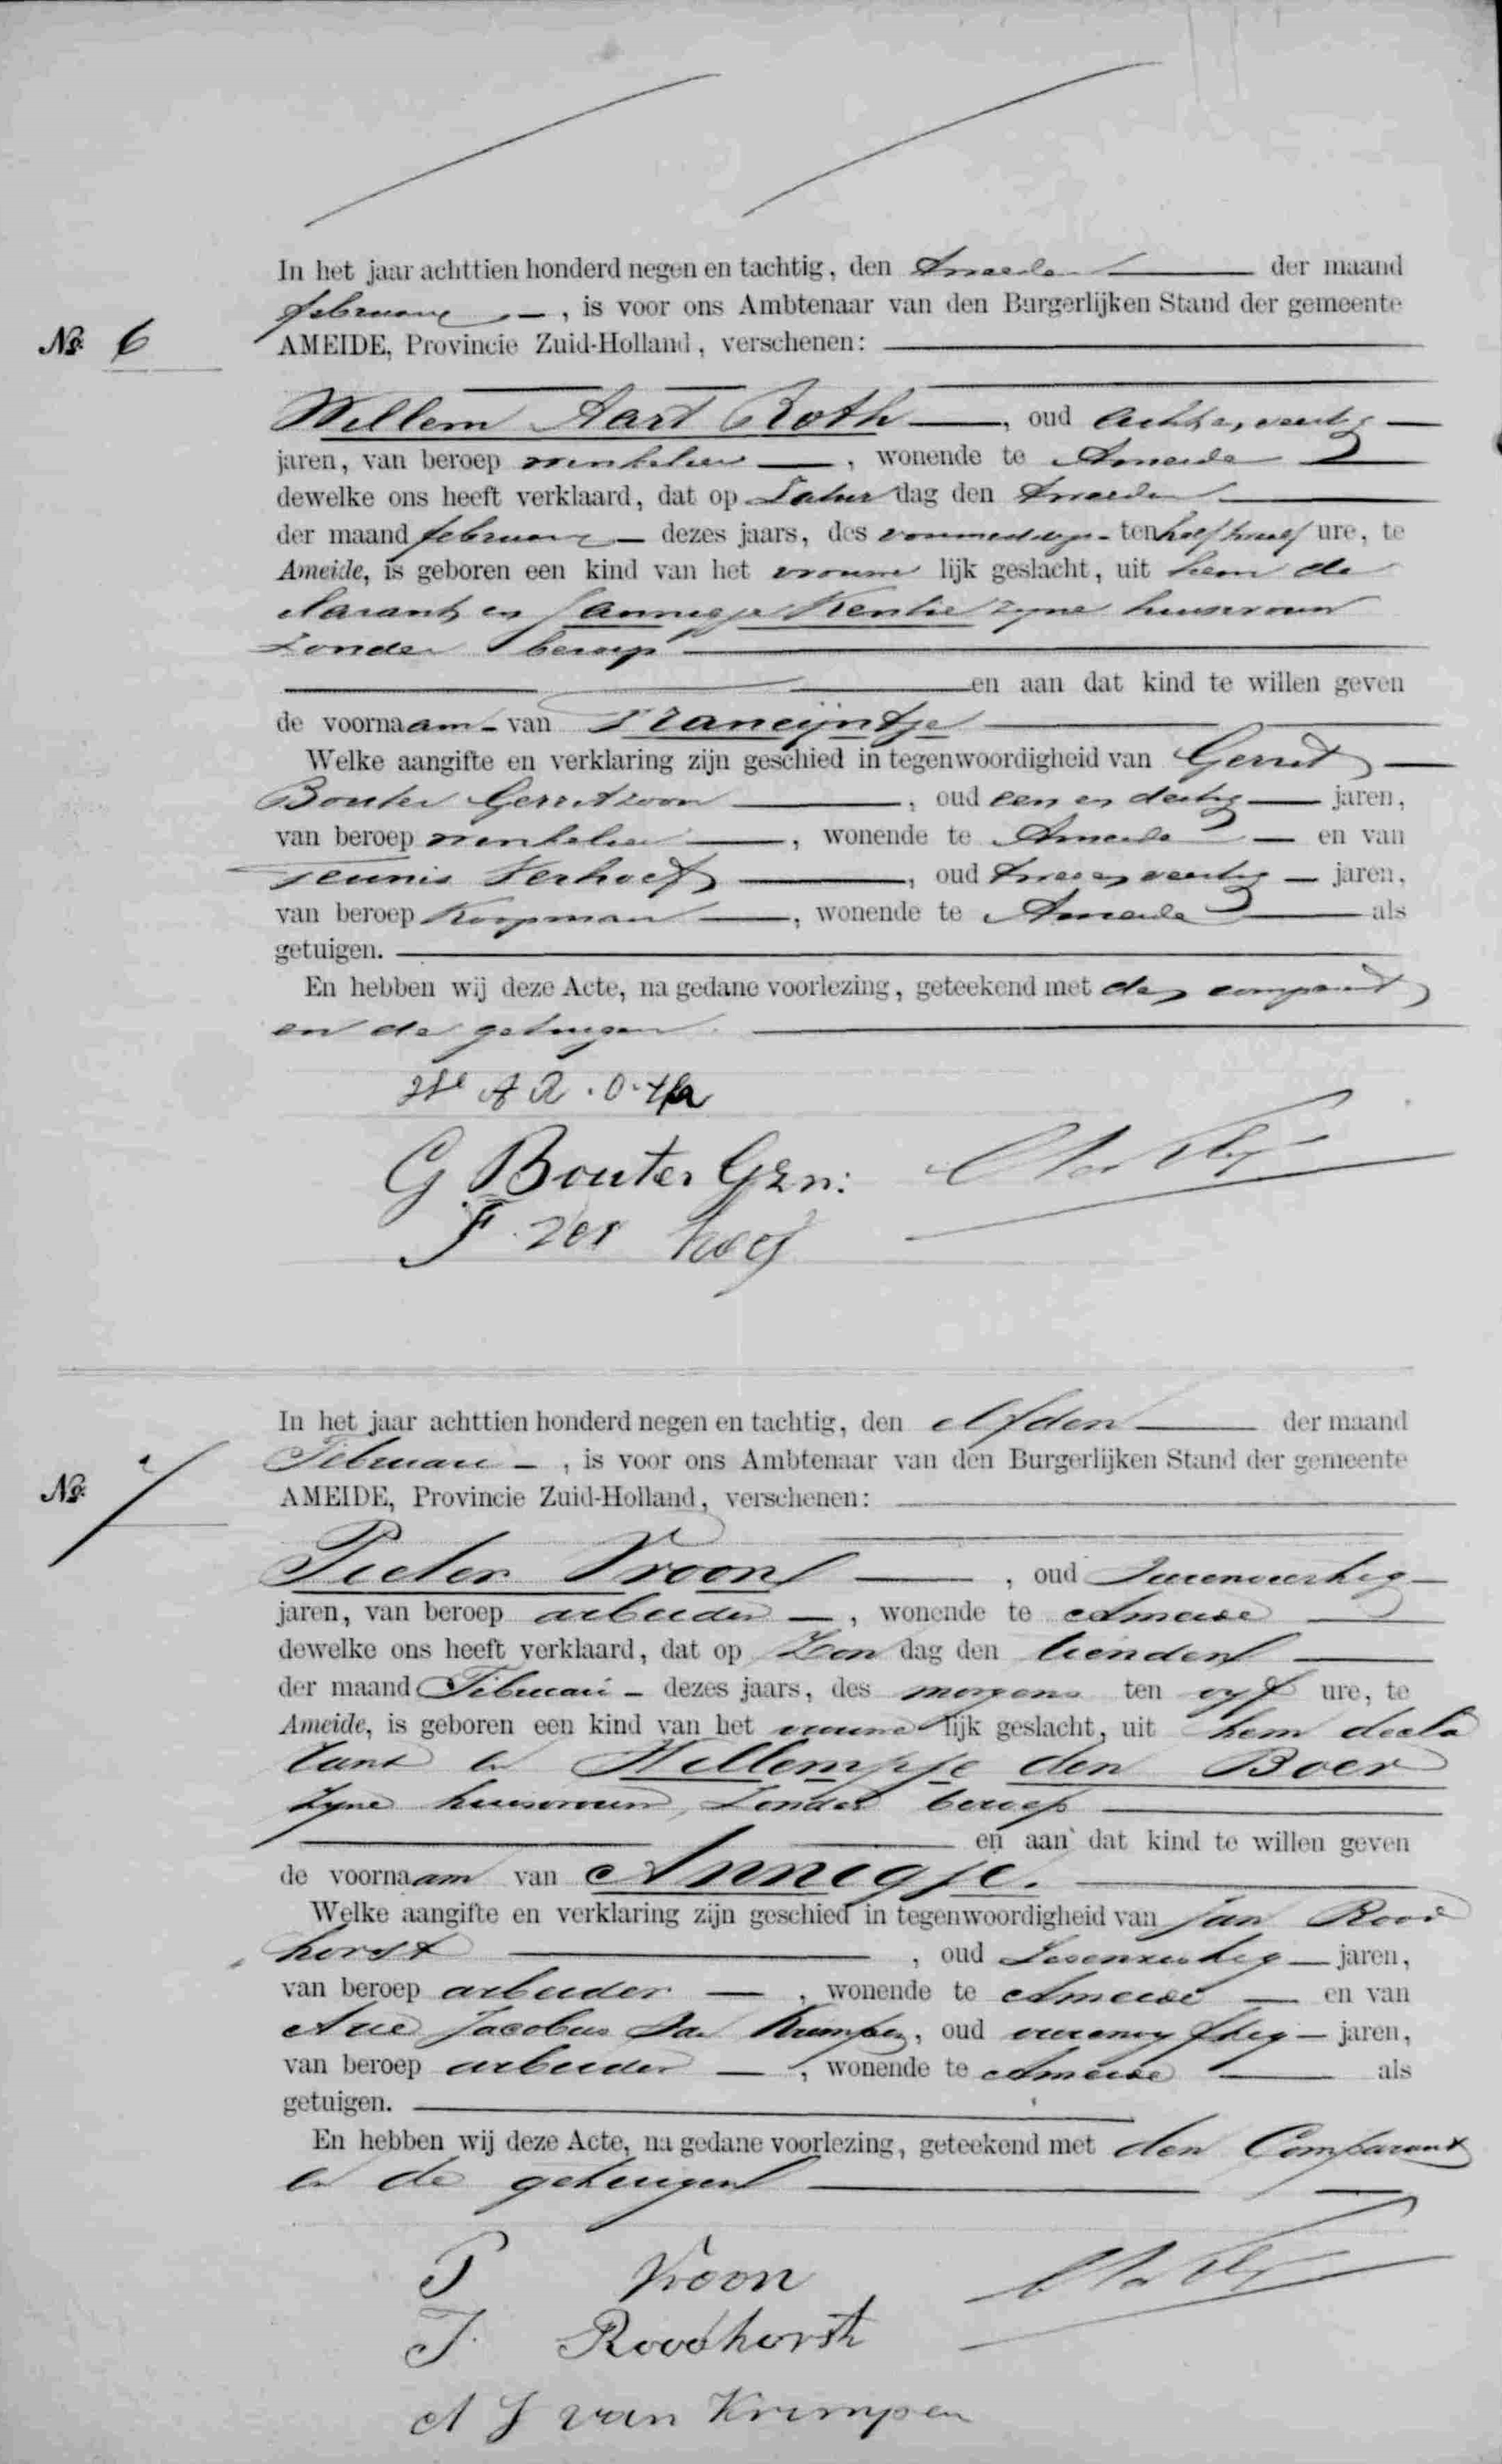 In het jaar achttien honderd negen en tachtig, den tweeden der maand
februari, is voor ons Ambtenaar van den Burgerlijken Stand der gemeente
No. 6
AMEIDE, Provincie Zuid-Holland, verschenen:
Willem Aart Roth, oud achtenveertig
jaren, van beroep winkelier, wonende te Ameide
dewelke ons heeft verklaard, dat op Zaturdag den tweeden
der maand februari dezes jaars, des voormiddags ten half twaalf ure, te
Ameide, is geboren een kind van het vrouwelijk geslacht, uit hem de
clarant en Jannigje Kentie zyne huisvrouw
zonder beroep
en aan dat kind te willen geven
de voornaam van Francijntje
Welke aangifte en verklaring zijn geschied in tegenwoordigheid van Gerrit
Bouter Gerritzoon, oud een en dertig jaren,
van beroep winkelier, wonende te Ameide en van
Teunis Verhoef, oud twee en veertig jaren,
van beroep Koopman, wonende te Ameide als
getuigen.
En hebben wij deze Acte, na gedane voorlezing, geteekend met den comparant
en de getuigen.
W A Roth
G Bouter Gzn:
T ver hoef
In het jaar achttien honderd negen en tachtig, den elfden der maand
Februari, is voor ons Ambtenaar van den Burgerlijken Stand der gemeente
No. 7
AMEIDE, Provincie Zuid-Holland, verschenen:
Pieter Vroon, oud
jaren, van beroep arbeider, wonende te Ameide
dewelke ons heeft verklaard, dat op Zondag den tienden
der maand Februari dezes jaars, des morgens ten vyf ure, te
Ameide, is geboren een kind van het vrouwelijk geslacht, uit hem decla
rant en Willempje den Boer
zyne huisvrouw, zonder beroep
en aan dat kind te willen geven
de voornaam van Annigje.
Welke aangifte en verklaring zijn geschied in tegenwoordigheid van Jan Rood
horst, oud jaren,
van beroep arbeider, wonende te Ameide en van
Arie Jacobus van Krimpen, oud vierenvyftig jaren,
van beroep arbeider, wonende te Ameide als
getuigen.
En hebben wij deze Acte, na gedane voorlezing, geteekend met den Comparant
en de getuigen
P Vroon
J. Roodhorst
A J van Krimpen